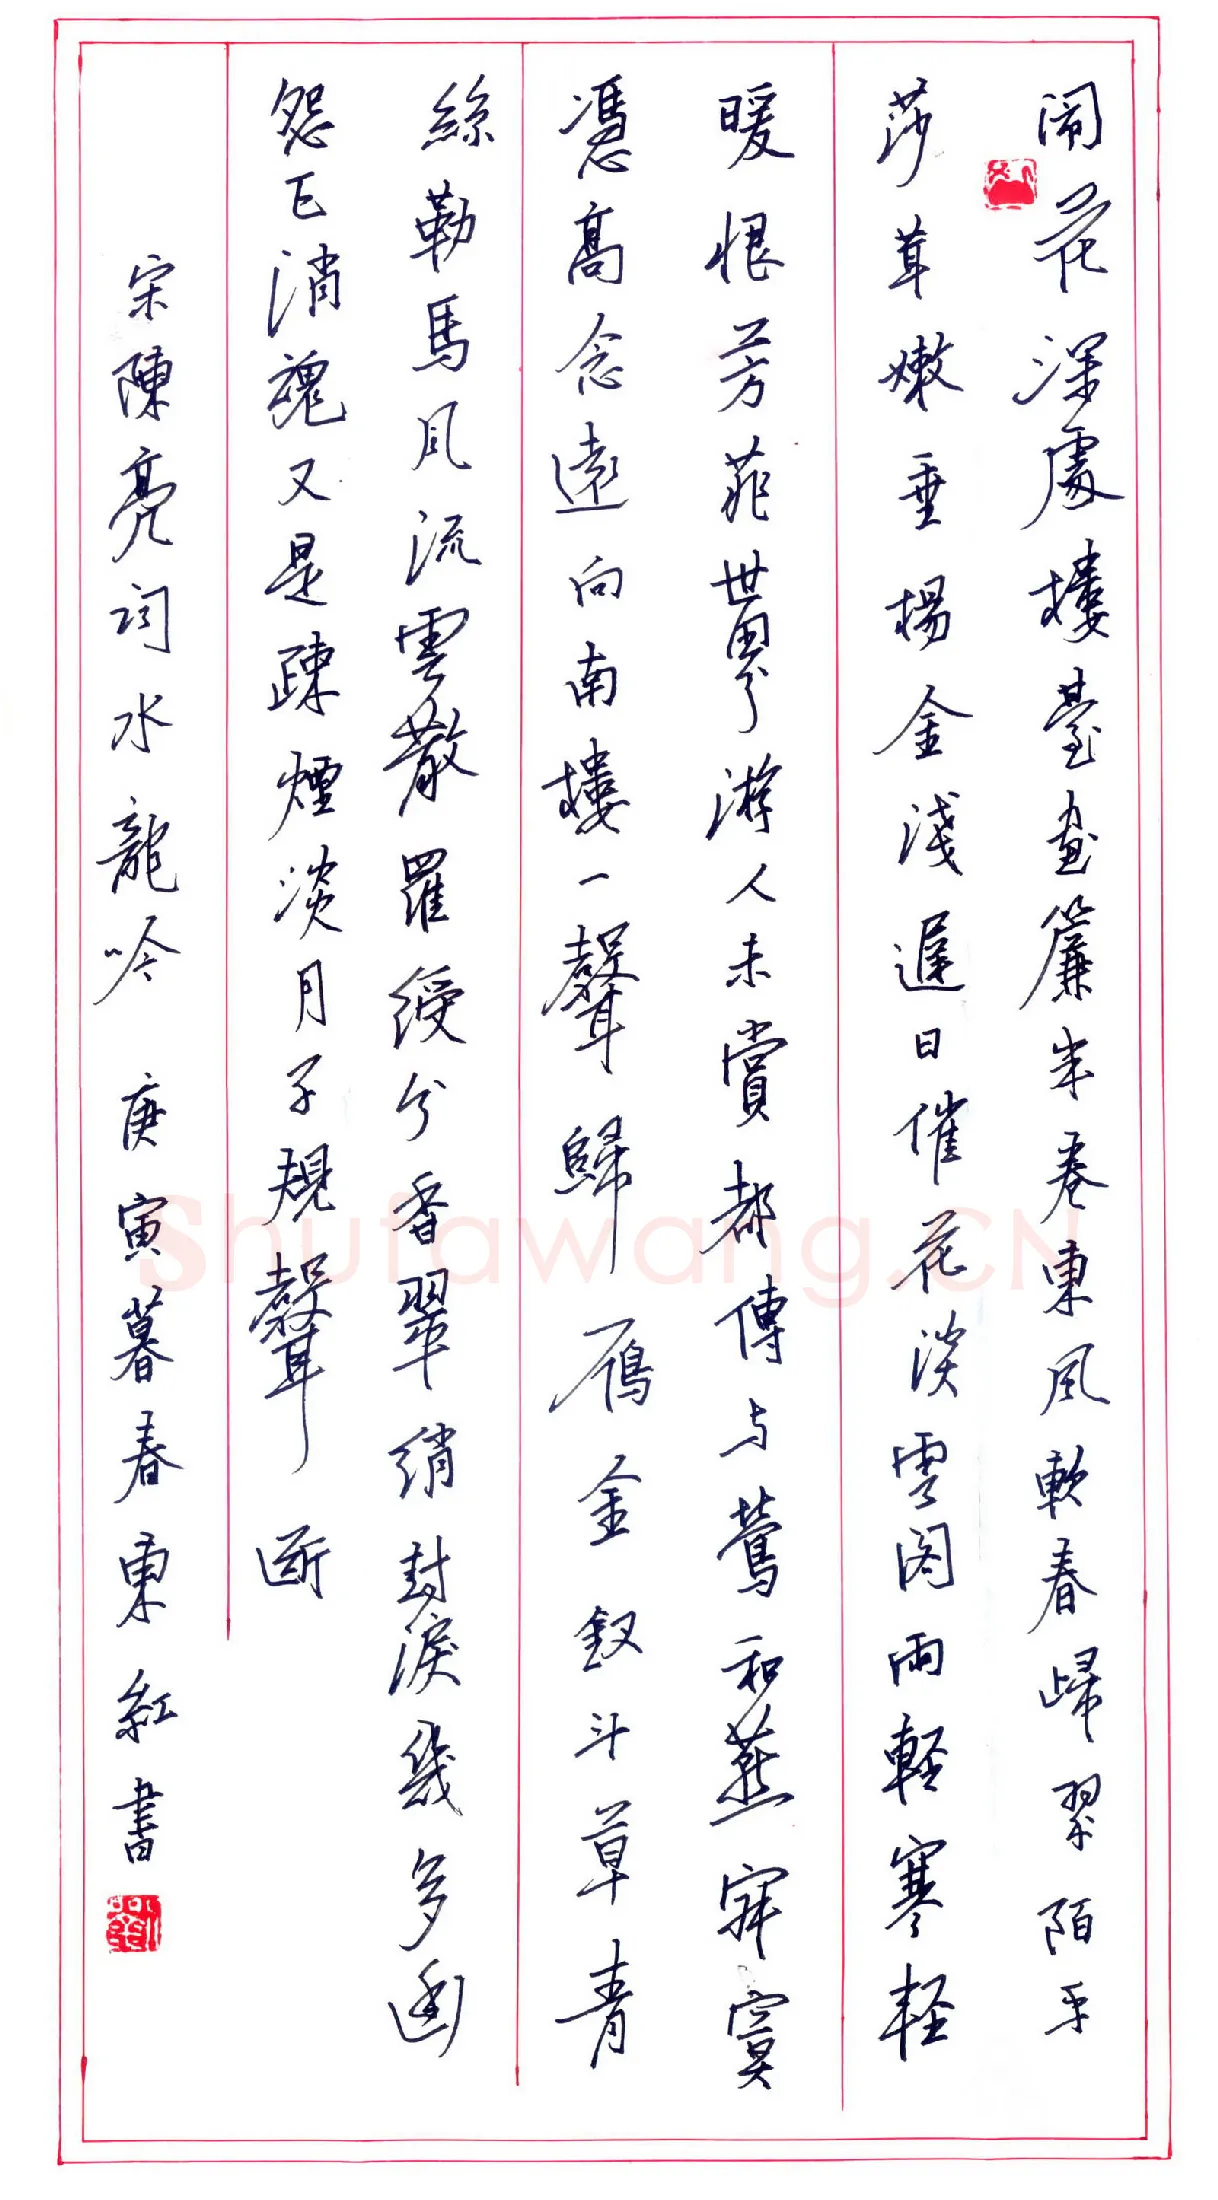 閙花深處樓臺畫簾半卷東風軟春歸翠陌平
莎茸嫩垂楊金淺遲日催花淡雲閣雨輕寒輕
暖恨芳菲世界游人未賞都傳与鶯和燕寂寞
憑高念遠向南樓一聲歸鴈金釵斗草青
絲勒馬風流雲散羅綬分香翠綃封淚幾多幽
怨已消魂又是疎煙淡月子規聲斷
宋陳亮詞水龍吟 庚寅暮春東紅書
Shufawang.CN